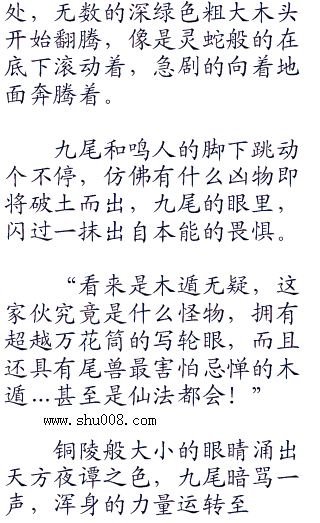 处，无数的深绿色粗大木头
开始翻腾，像是灵蛇般的在
底下滚动着，急剧的向着地
面奔腾着。
九尾和鸣人的脚下跳动
个不停，仿佛有什么凶物即
将破土而出，九尾的眼里，
闪过一抹出自本能的畏惧。
“看来是木遁无疑，这
家伙究竟是什么怪物，拥有
超越万花筒的写轮眼，而且
还具有尾兽最害怕忌惮的木
遁…甚至是仙法都会！”
www.shu008.com
铜陵般大小的眼睛涌出
天方夜谭之色，九尾暗骂一
声，浑身的力量运转至